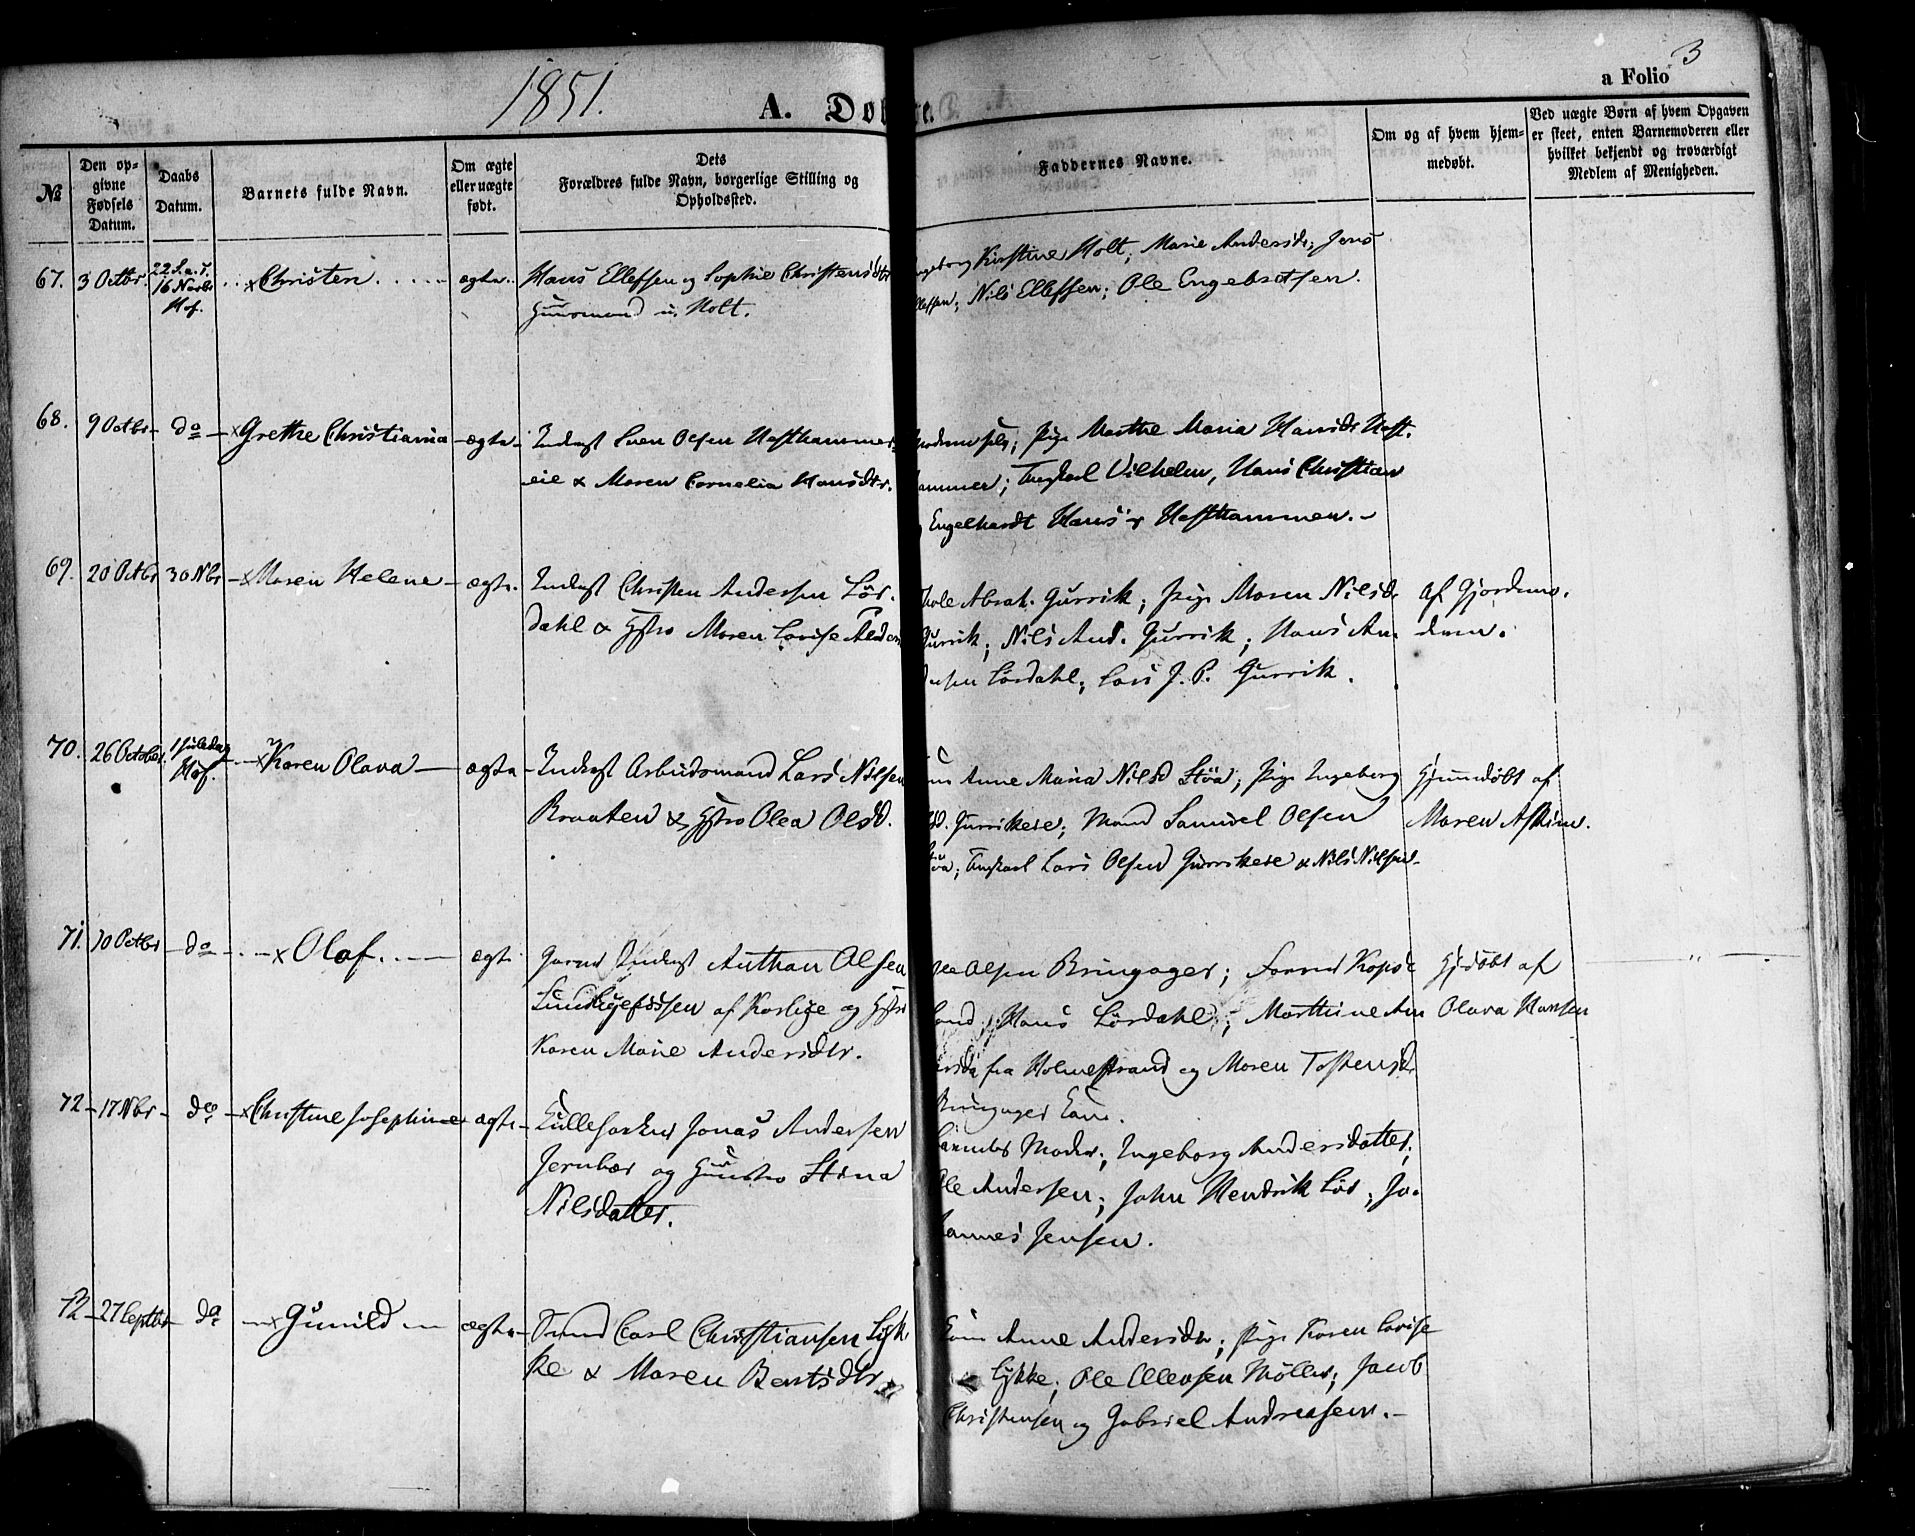 1851.
3
A. Dø
te.
a Folio
№
Den op-
givne
Fødsels
Datum.
Daabs
Datum.
Barnets fulde Navn.
Om ægte
eller uægte
født.
Dets
Forældres fulde Navn, borgerlige Stilling og
Opholdssted.
Faddernes Navne.
Om og af hvem hjem-
medøbt.
Ved uægte Børn af hvem Opgaven
er skeet, enten Barnemoderen eller
hvilket bekjendt og troværdigt
Medlem af Menigheden.
67. 3 Octbr. 22 S. a. T.
16 Novbr
Hof.
x Christen ægte.
Hans Ellefsen og Sophie Christensdtr
Huusmand u. Holt.
Kirstine Holt; Marie Andersdr; Jens
Nils Ellefsen; Ole Engebretsen.
68. 9 Octbr do x Grethe Christiania ægte
Inderst Sven Olsen Hafthammer
eie & Maren Cornelia Hansdtr.
Pige Marthe Maria Hansdr Haft-
hammer; Ungkarl Vilhelm, Hans Christian
Engelhardt Hans Hafthammer.
69. 20 Octbr 30 Nbr x Maren Helene ægte.
Inderst Christen Andersen Lör-
dahl & Hstro Maren Lovise
Abrah. Gurrik; Pige Maren Nilsdr
Gurrik; Nils And. Gurrik; Hans An-
dersen Lördahl; Lars J. P. Gurrik.
af Gjordemo-
deren.
70. 26 October 1 Juledag
Hof.
x Karen Olava ægte
Inderst Arbeidsmand Lars Nilsen
Braaten & Hstro Olea Olsd.
Anne Maria Nilsd Stöa; Pige Ingeborg
Gurrikeie; Mand Samuel Olsen
Stöa; Ungkarl Lars Olsen Gurrikeie & Nils Nilsen
Hjemdöbt af
Maren Askim.
71. 30 Octbr do x Olaf. ægte
Inderst Anthon Olsen
af og Hstro
Karen Marie Andersdtr.
Ole Olsen Bringager;
Hans Lördahl; Marthine An
dersdr fra Holmestrand og Maren Tostensdr
Bringager Eem.
Hjdöbt af
Olava Hansen
72 17 Nbr do x Christine Josephine ægte
Jonas Andersen
og Hustro Stina
Nilsdatter.
Barnets Moder; Ingeborg Andersdatter;
Ole Andersen; John Hendrik Lör; Jo-
hannes Jensen.
72 27 Septbr do x Gunild ægte
Carl Christiansen Lyk-
ke & Maren Berntsdtr
Anne Andersdtr; Pige Karen Lovise
Lykke; Ole Ellevsen Möller; Jacob
Christensen og Gabriel Andreasen.